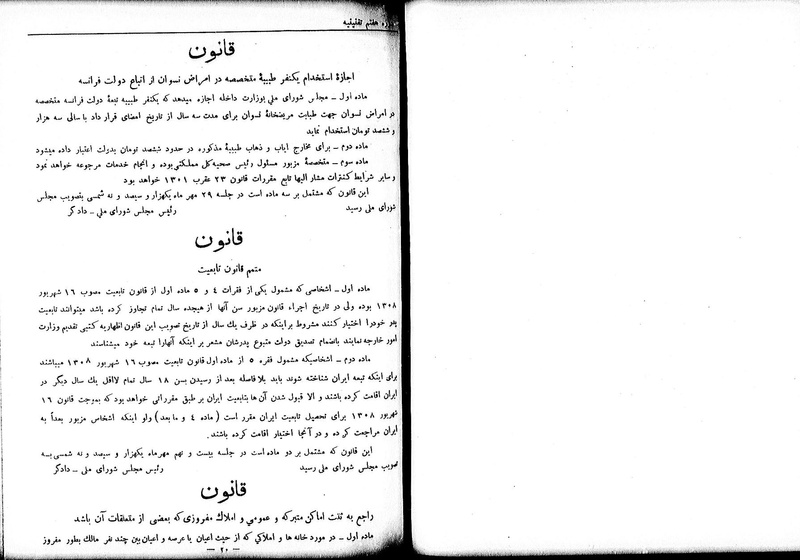 دوره هفتم تقنینیه
قانون
اجازهٔ استخدام یکنفر طبیبهٔ متخصصه در امراض نسوان از اتباع دولت فرانسه
ماده اول ـ مجلس شورای ملی بوزارت داخله اجازه میدهد که یکنفر طبیبه تبعهٔ دولت فرانسه متخصصه
در امراض نسوان جهت طبابت مریضخانهٔ نسوان برای مدت سه سال از تاریخ امضای قرار داد با سالی سه هزار
و ششصد تومان استخدام نماید
ماده دوم ـ برای مخارج ایاب و ذهاب طبیبهٔ مذکوره در حدود ششصد تومان بدولت اعتبار داده میشود
ماده سوم ـ متخصصهٔ مزبور مسئول رئیس صحیه کل مملکتی بوده و انجام خدمات مرجوعه خواهد نمود
و سایر شرایط کنترات مشار الیها تابع مقررات قانون ۲۳ عقرب ۱۳۰۱ خواهد بود
این قانون که مشتمل بر سه ماده است در جلسه ۲۹ مهر ماه یکهزار و سیصد و نه شمسی بتصویب مجلس
شورای ملی رسید رئیس مجلس شورای ملی ـ دادگر
قانون
متمم قانون تابعیت
ماده اول ـ اشخاصی که مشمول یکی از فقرات ٤ و ٥ ماده اول از قانون تابعیت مصوب ۱٦ شهریور
۱۳۰۸ بوده ولی در تاریخ اجراء قانون مزبور سن آنها از هیجده سال تمام تجاوز کرده باشد میتوانند تابعیت
پدر خود را اختیار کنند مشروط بر اینکه در ظرف یك سال از تاریخ تصویب این قانون اظهاریه کتبی تقدیم وزارت
امور خارجه نمایند بانضمام تصدیق دولت متبوع پدرشان مشعر بر اینکه آنها را تبعه خود میشناسند
ماده دوم ـ اشخاصیکه مشمول فقره ٥ از ماده اول قانون تابعیت مصوب ۱٦ شهریور ۱۳۰۸ میباشند
برای اینکه تبعه ایران شناخته شوند باید بلا فاصله بعد از رسیدن بسن ۱۸ سال تمام لااقل یك سال دیگر در
ایران اقامت کرده باشند و الا قبول شدن آن ها بتابعیت ایران بر طبق مقرراتی خواهد بود که بموجب قانون ۱٦
شهریور ۱۳۰۸ برای تحصیل تابعیت ایران مقرر است (ماده ٤ و ما بعد) ولو اینکه اشخاص مزبور بعداً به
ایران مراجعت کرده و در آنجا اختیار اقامت کرده باشند.
این قانون که مشتمل بر دو ماده است در جلسه بیست و نهم مهر ماه یکهزار و سیصد و نه شمسی بسه
تصویب مجلس شورای ملی رسید رئیس مجلس شورای ملی ـ دادگر
قانون
راجع به ثبت اماکن متبرکه و عمومی و املاك مفروزی که بعضی از متعلقات آن باشد
ماده اول ـ در مورد خانه ها و املاکی که از حیث اعیان یا عرصه و اعیان بین چند نفر مالك بطور مفروز
ـ ۲۰ ـ